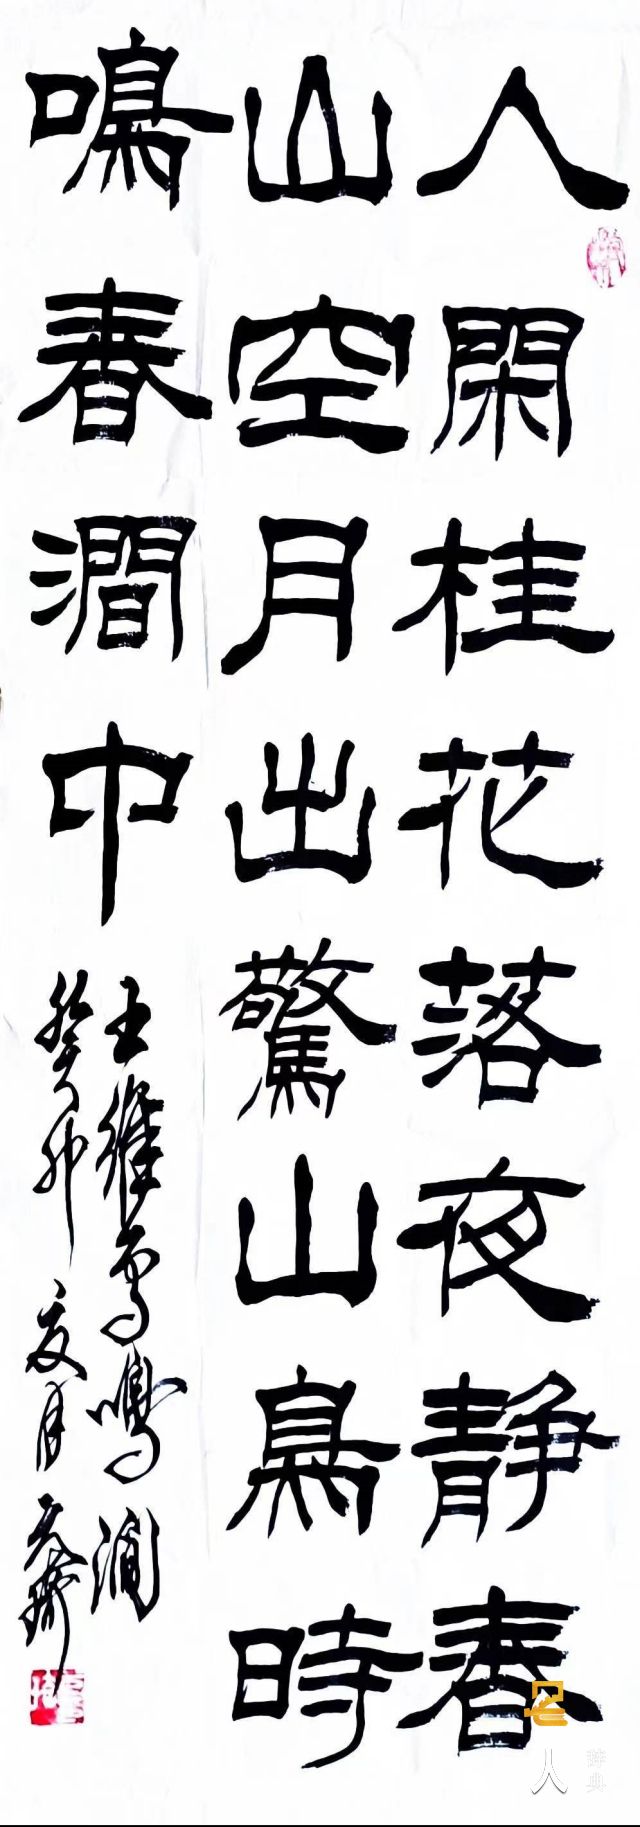 人閑桂花落夜静春
山空月出驚山鳥時
鳴春澗中
王維鳥鳴澗
癸卯夏月
名人
辞典